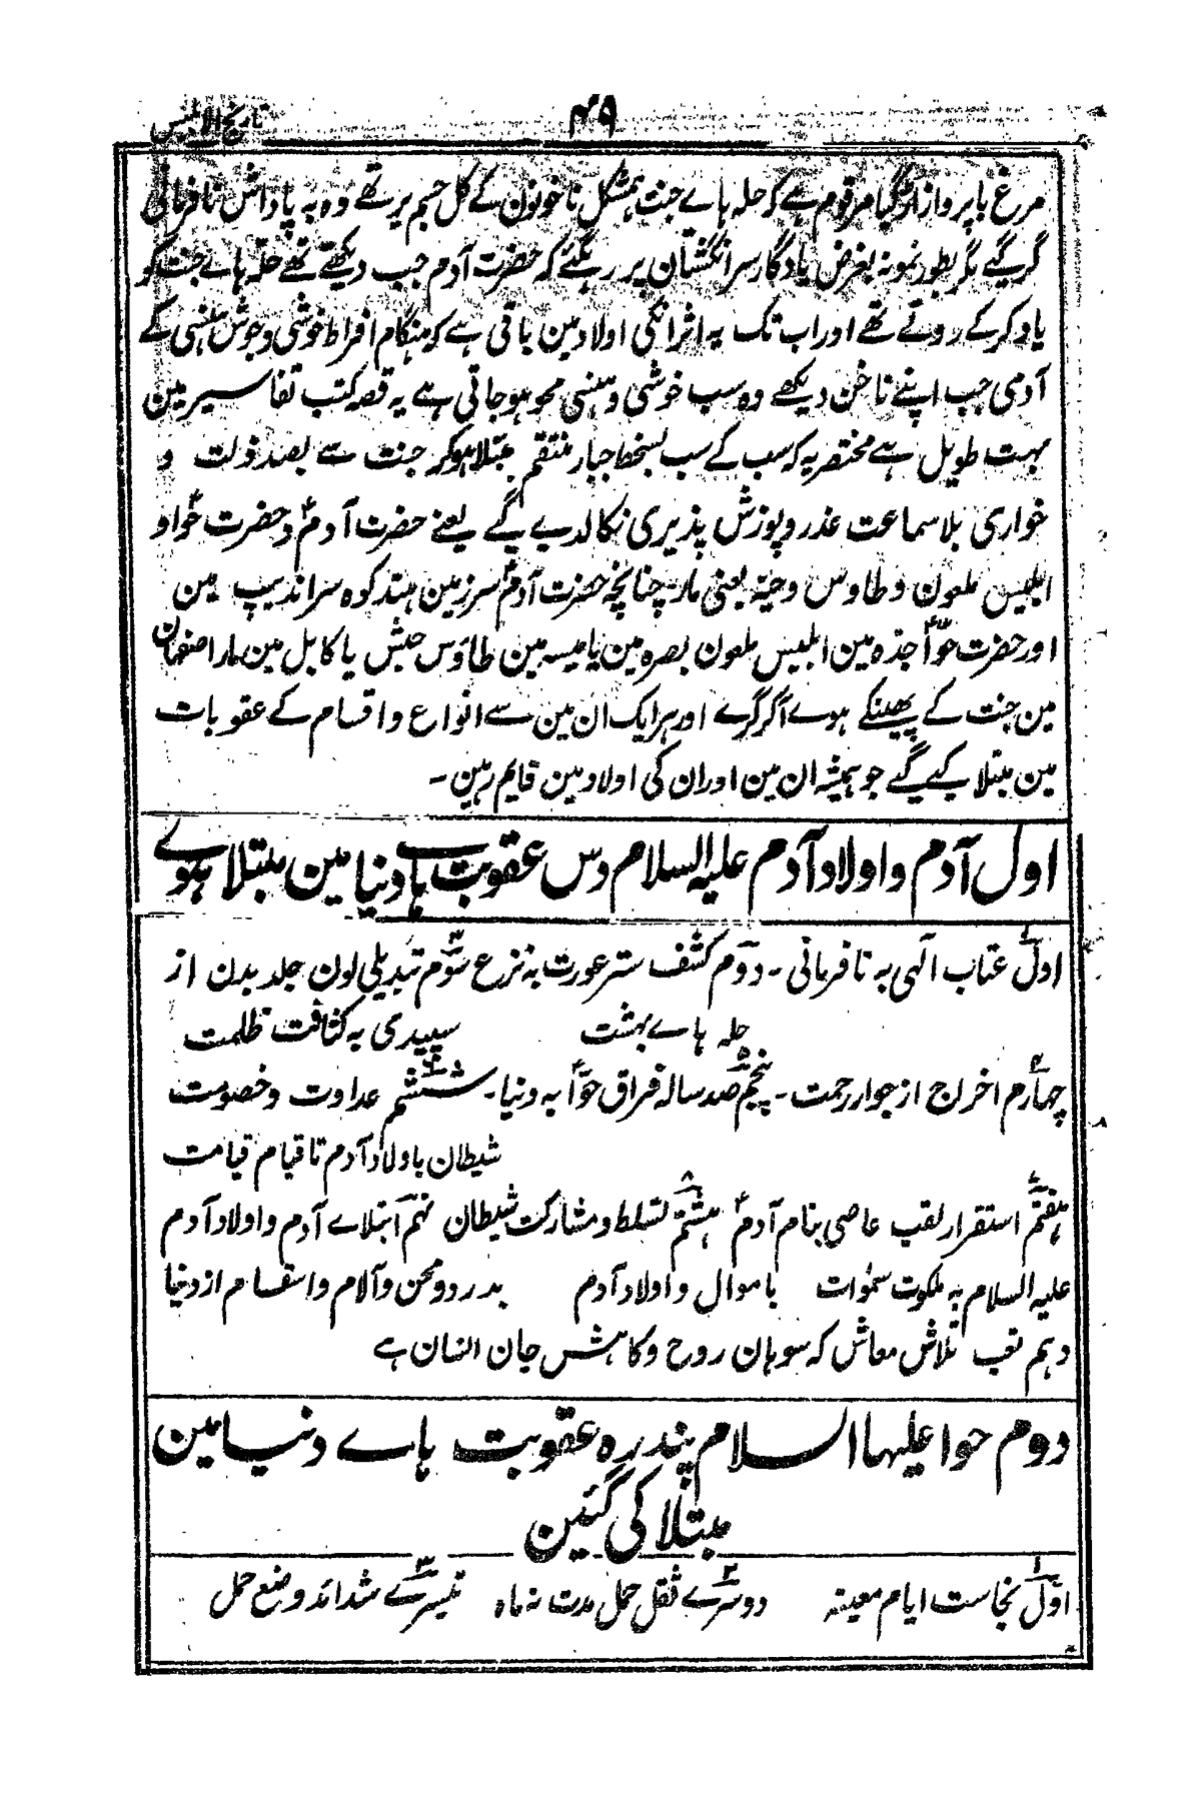 ۴۹
تاریخ الابلیس
مرغ با پرواز اڑ گیا مرقوم ہے کہ حلہ ہاے جنت ہمشکل ناخونون کے کل جسم پر تھے وہ بہ پاداش نافرمانی
گر گیے مگر بطور نمونہ بغرض یادگار سر انگشتان پر رہگئے کہ حضرت آدم جب دیکھتے تھے حلہ ہاے جنت کو
یاد کر کے روتے تھے اور اب تک یہ اثر انکی اولاد مین باقی ہے کہ ہنگام افراط خوشی و جوش ہنسی کے
آدمی جب اپنے ناخن دیکھے وہ سب خوشی و ہنسی محو ہو جاتی ہے یہ قصہ کتب تفاسیر مین
بہت طویل ہے مختصر یہ کہ سب کے سب بسخط جبار منتقم مبتلا ہو کر جنت سے بصد ذلت و
خواری بلا سماعت عذر و پوزش پذیری نکالدیے گیے یعنے حضرت آدمؑ و حضرت حواؑ و
ابلیس ملعون و طاوس و حیۃ یعنی مار چنانچہ حضرت آدمؑ سر زمین ہند کوہ سراندیپ مین
اور حضرت حوّاؑ جدّہ مین ابلیس ملعون بصرہ مین یا میسہ مین طاؤس حبش یا کابل مین مار اصفہان
مین جنت کے پھینکے ہوے آگر گرے اور ہر ایک ان مین سے انواع و اقسام کے عقوبات
مین مبتلا کیے گیے جو ہمیشہ ان مین اور ان کی اولاد مین قایم رہین ۔
اول آدم و اولاد آدم علیہ السلام دس عقوبت ہاے دنیا مین مبتلا ہوے
اول۱ عتاب الٰہی بہ نافرمانی ۔ دوّم۲ کشف ستر عورت بہ نزع سوّم۳ تبدیلی لون جلد بدن از
حلہ ہاے بہشت سپیدی بہ کثافت ظلمت
چہارم۴ اخراج از جوار رحمت ۔ پنجم۵ صد سالہ فراق حوّاؑ بہ دنیا ۔ ششم۶ عداوت و خصومت
شیطان با ولاد آدم تا قیام قیامت
ہفتم۷ استقرار لقب عاصی بنام آدمؑ ہشتم۸ تسلط و مشارکت شیطان نہم۹ ابتلاے آدم و اولاد آدم
علیہ السلام بہ ملکوت سمٰوات باموال و اولاد آدم بدرد و محن و آلام و اسقام از دنیا
دہم تعب تلاش معاش کہ سوہان روح و کاہش جان انسان ہے
دوم حوا علیہا السلام پندرہ عقوبت ہاے دنیا مین
مبتلا کی گئین
اوّل۱ نجاست ایام معینہ دوسرے۲ ثقل حمل مدت نہ ماہ تیسرے۳ شدائد وضع حمل